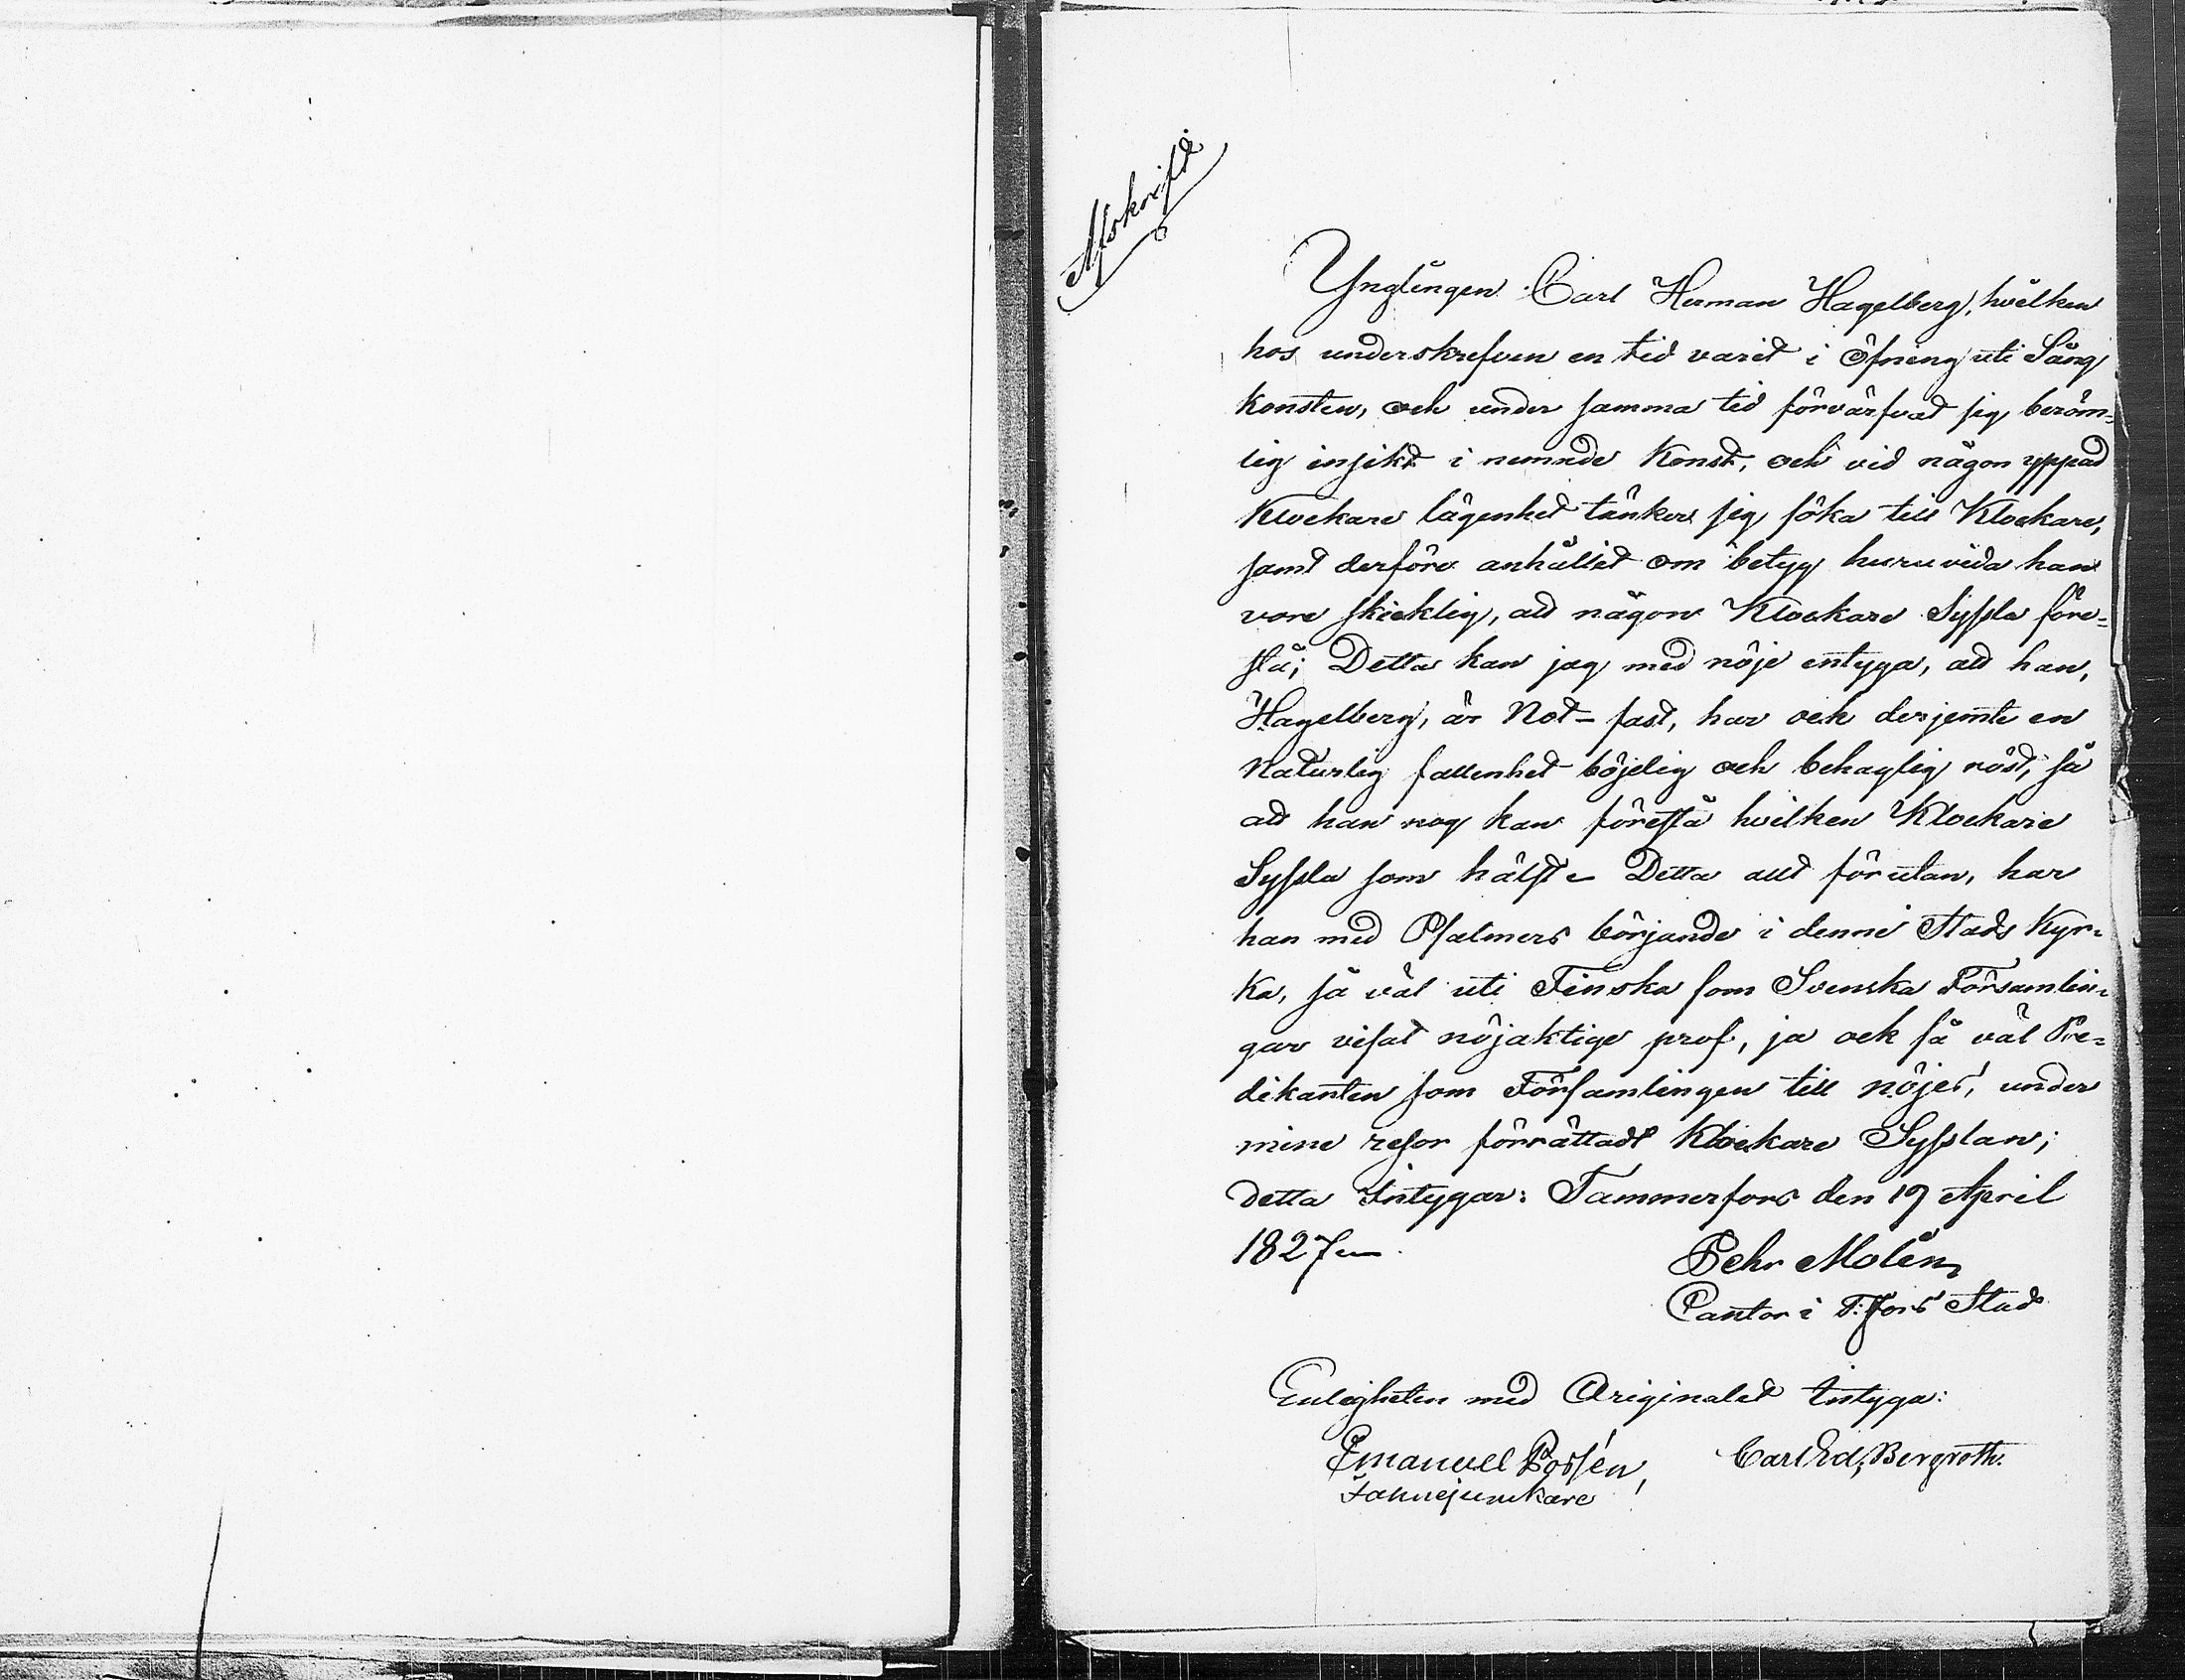 Afskrift
Ynglingen Carl Herman Hagelberg, hvilken
hos underskrefven en tid varit i öfning uti Sång
konsten, och under samma tid förvärfvat sig beröm-
lig insikt i nemnde Konst, och vid någon yppad
Klockare lägenhet tänker sig söka till Klockare,
samt derföre anhållit om betyg huruvida han
vore skicklig, att någon Klockare Syssla före-
stå; Detta kan jag med nöje intyga, att han,
Hagelberg, är Not-fast, har ock derjemte en
Naturlig fallenhet böjelig och behaglig röst, så
att han nog kan förestå hvilken Klockare
Syssla som hälst. Detta allt förutan, har
han med Psalmers börjande i denne Stads Kyr-
ka, så väl uti Finska som Svenska Församlin-
gar visat nöjaktige prof, ja ock så väl Pre-
dikanten som Församlingen till nöjes, under
mine resor förrättadt Klockare Sysslan;
detta Intygar: Tammerfors den 19 April
1827.
Pehr Molin
Cantor i T:fors Stad
Enligheten med Originalet Intyga:
Emanuel Possén, Carl Ed; Bergroth.
Fahnejunkare